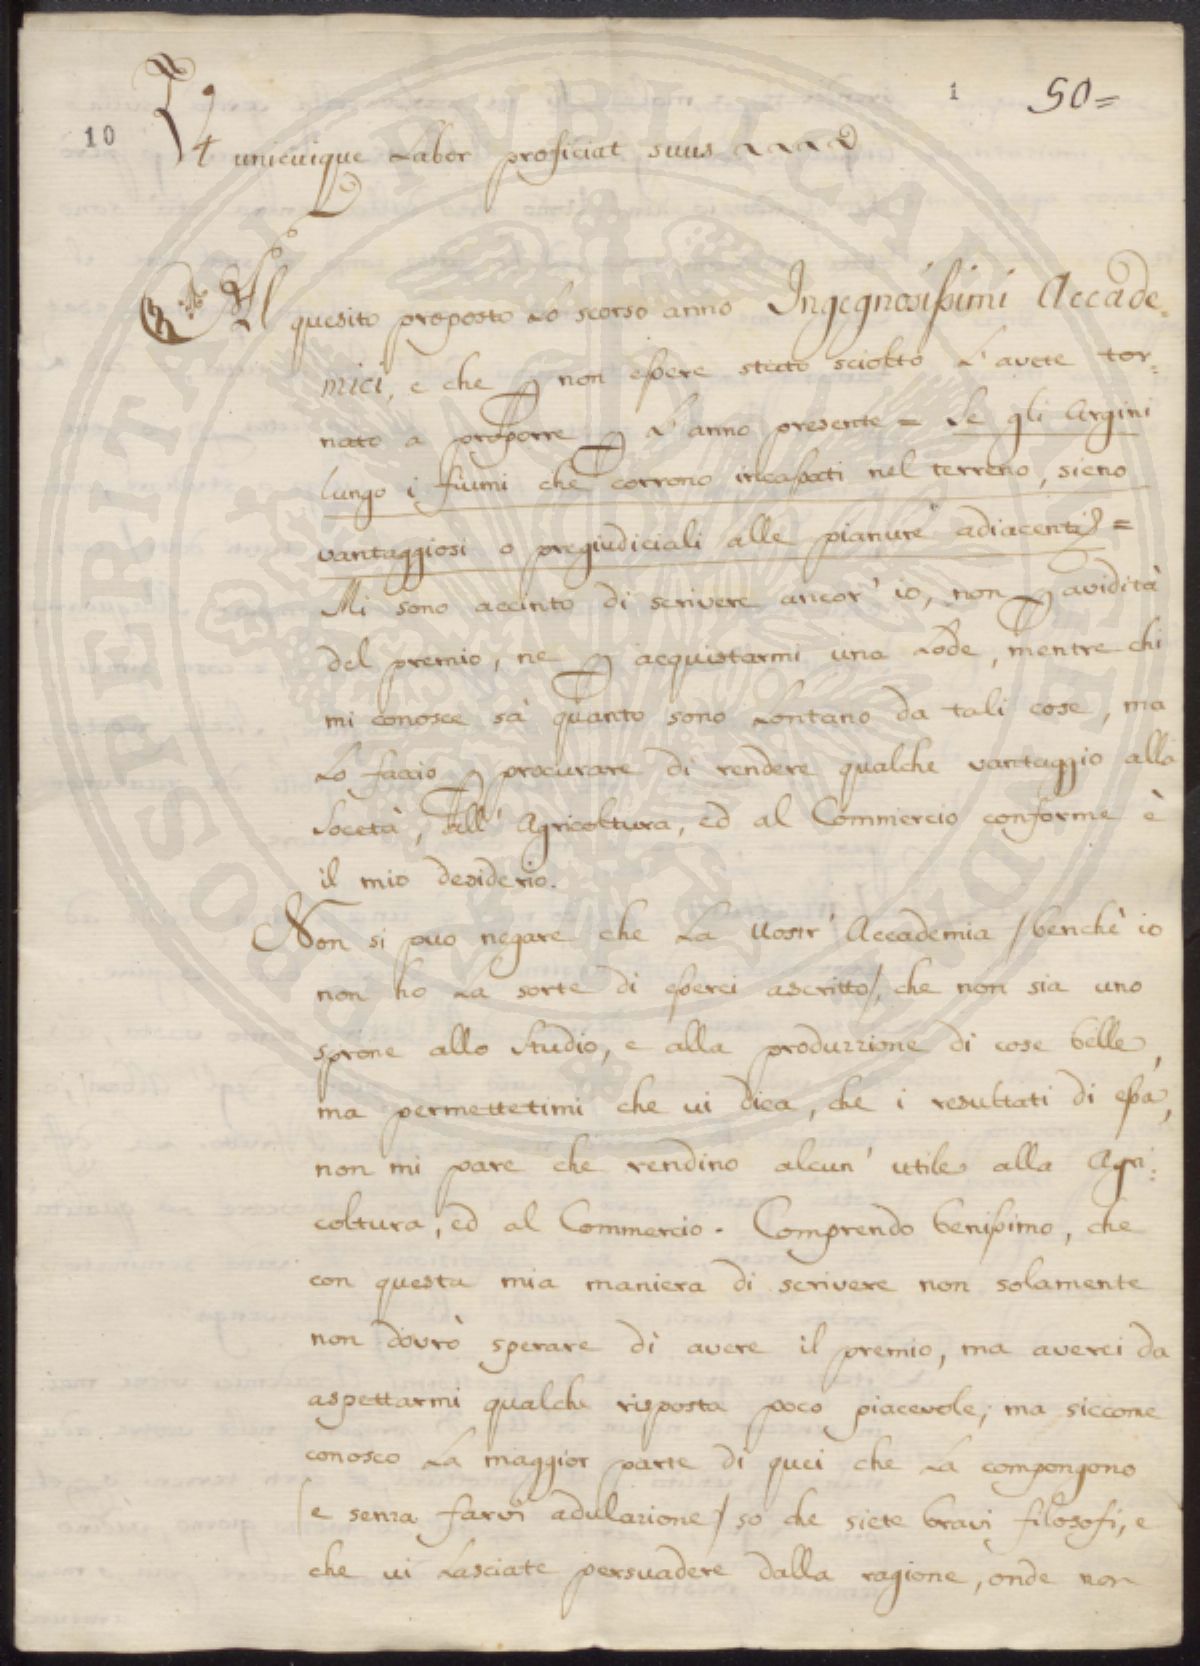 1 50=
10
Ut unicuique Labor proficiat suus
Al quesito proposto Lo scorso anno Ingegnosissimi Accade=
mici, e che p non essere stato sciolto L'avete tor=
nato a proporre p L'anno presente = Se gli Argini
lungo i fiumi che corrono incassati nel terreno, sieno
vantaggiosi o pregiudiciali alle pianure adiacenti =
Mi sono accinto di scrivere ancor' io, non p avidità
del premio, ne p acquistarmi una Lode, mentre chi
mi conosce sà quanto sono Lontano da tali cose, ma
Lo faccio p procurare di rendere qualche vantaggio alla
Società, all' Agricoltura, ed al Commercio conforme è
il mio desiderio.
Non si può negare che La Vostr' Accademia /benchè io
non ho La sorte di esserci ascritto/, che non sia uno
sprone allo Studio, e alla produzzione di cose belle,
ma permettetimi che vi dica, che i resultati di essa,
non mi pare che rendino alcun' utile alla Agri=
coltura, ed al Commercio. Comprendo benissimo, che
con questa mia maniera di scrivere non solamente
non dovrò sperare di avere il premio, ma averei da
aspettarmi qualche risposta poco piacevole; ma siccome
conosco La maggior parte di quei che La compongono
/e senza farvi adulazione/ so che siete bravi filosofi, e
che vi Lasciate persuadere dalla ragione, onde non
PROSPERITATI PUBLICAE